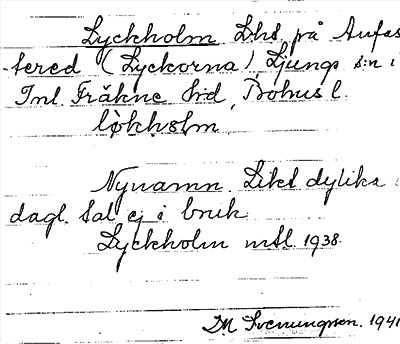 Lyckholm Lht på Anfas
-tered (Lyckorna) Ljungs s:n i
Inl. Fräkne hrd, Bohus l.
lỳkholm
Nynamn. Likt dylika
dagl. tal ej i bruk
Lyckholm mtl 1938.
DM Svenungsson. 1941